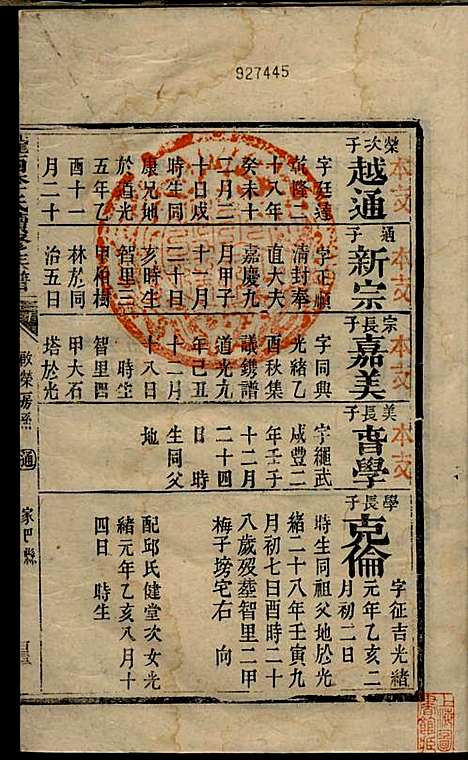 927445
本支
榮次子
越通
字廷達
乾隆二
十八年
癸未十
二月三
十日戌
時生同
康兄地
於道光
五年乙
酉十一
月二十
本支
通子
新宗
字正順
清封奉
直大夫
嘉慶九
月甲子
十一月
二十日
亥時生
智里三
甲仰樹
林於同
治五日
本支
宗長子
嘉美
字同興
光緒乙
酉秋集
議鐫譜
道光九
年己丑
十一月
十八日
時塟
智里四
甲大石
塔於光
本支
美長子
學
字繩武
咸豐二
年壬子
十二月
二十四
日時
生同父
地
學長子
克倫
字征吉光緒
元年乙亥二
月初二日
時生同祖父地於光
緒二十八年壬寅九
月初七日酉時二十
八歲歿塟智里二甲
梅子塝宅右向
配邱氏健堂次女光
緒元年乙亥八月十
四日時生
敏榮房系
通
上海圖
書館藏